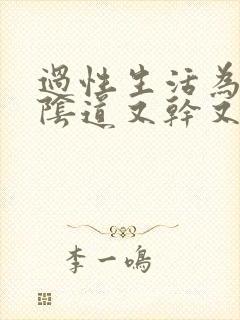 過性生活為
陰道又幹又
李一鳴